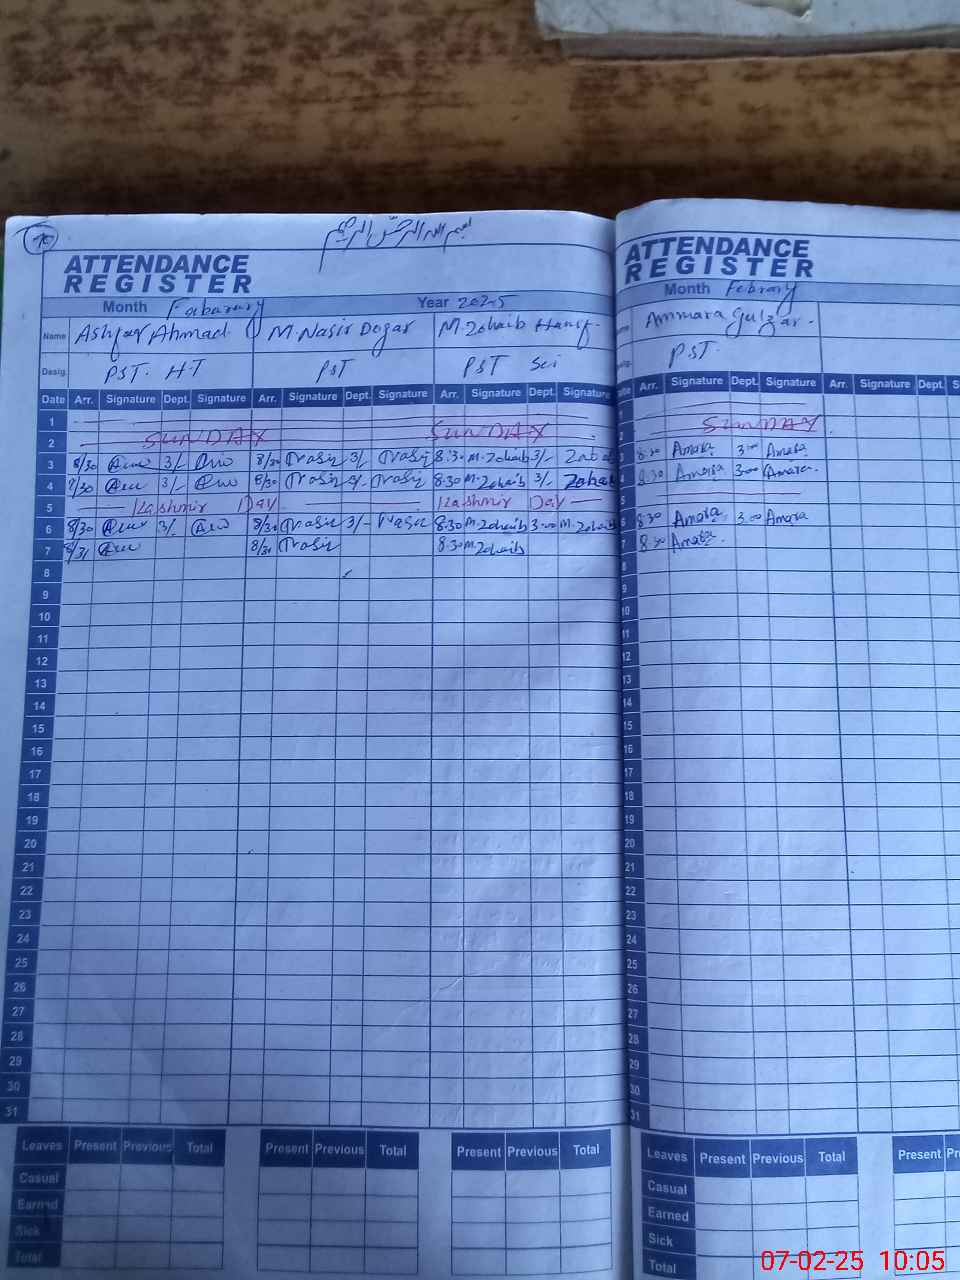 بسم الله الرحمن الرحيم
ATTENDANCE
REGISTER
Month Year 2025
Name Ashfaq Ahmad M. Nasir Dogar M. Zohaib Hanif
Desig. PST. H.T PST PST Sci
Date Arr. Signature Dept. Signature Arr. Signature Dept. Signature Arr. Signature Dept. Signature
1
2 SUNDAY SUNDAY
3 8/30 3/- 8/30 Nasir 3/- Nasir 8:30 M.Zohaib 3/-
4 8/30 3/- 8/30 Nasir 3/- Nasir 8:30 M.Zohaib 3/- Zohaib
5 Kashmir Day Kashmir Day
6 8/30 3/- 8/30 Nasir 3/- Nasir 8:30 M.Zohaib 3:00 M.Zohaib
7 8/31 8/30 Nasir 8:30 M.Zohaib
8
9
10
11
12
13
14
15
16
17
18
19
20
21
22
23
24
25
26
27
28
29
30
31
Leaves Present Previous Total Present Previous Total Present Previous Total
Casual
Earned
Sick
Total
ATTENDANCE
REGISTER
Month
Ammara Gulzar.
PST.
Arr. Signature Dept. Signature Arr. Signature Dept.
1
2 SUNDAY
3 8:30 Amara 3:00 Amara
4 8:30 Amara 3:00 Amara
5
6 8:30 Amara 3:00 Amara
7 8:30 Amara
8
9
10
11
12
13
14
15
16
17
18
19
20
21
22
23
24
25
26
27
28
29
30
31
Leaves Present Previous Total Present
Casual
Earned
Sick
Total
07-02-25 10:05